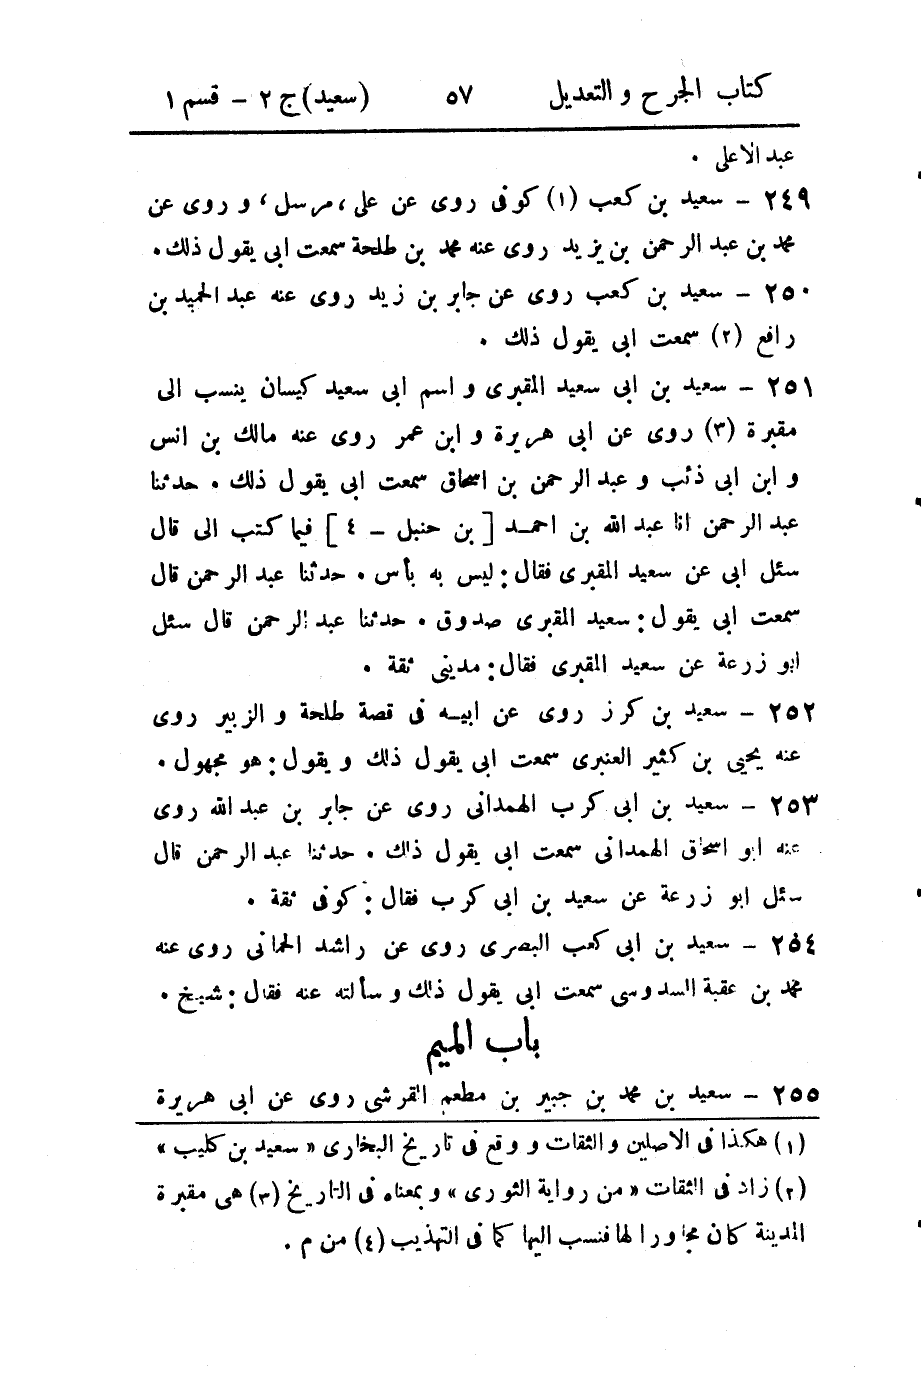 كتاب الجرح و التعديل ٥٧ (سعيد) ج ٢ - قسم ١
عبد الاعلى .
٢٤٩ - سعيد بن كعب (١) كوفى روى عن على، مرسل، و روى عن
محمد بن عبد الرحمن بن يزيد روى عنه محمد بن طلحة سمعت ابى يقول ذلك .
٢٥٠ - سعيد بن كعب روى عن جابر بن زيد روى عنه عبد الحميد بن
رافع (٢) سمعت ابى يقول ذلك .
٢٥١ - سعيد بن ابى سعيد المقبرى و اسم ابى سعيد كيسان ينسب الى
مقبرة (٣) روى عن ابى هريرة و ابن عمر روى عنه مالك بن انس
و ابن ابى ذئب و عبد الرحمن بن اسحاق سمعت ابى يقول ذلك . حدثنا
عبد الرحمن انا عبد الله بن احمد [ بن حنبل - ٤ ] فيما كتب الى قال
سئل ابى عن سعيد المقبرى فقال : ليس به بأس . حدثنا عبد الرحمن قال
سمعت ابى يقول : سعيد المقبرى صدوق . حدثنا عبد الرحمن قال سئل
ابو زرعة عن سعيد المقبرى فقال : مدينى ثقة .
٢٥٢ - سعيد بن كرز روى عن ابيه فى قصة طلحة و الزبير روى
عنه يحيى بن كثير العنبرى سمعت ابى يقول ذلك و يقول : هو مجهول .
٢٥٣ - سعيد بن ابى كرب الهمدانى روى عن جابر بن عبد الله روى
عنه ابو اسحاق الهمدانى سمعت ابى يقول ذلك . حدثنا عبد الرحمن قال
سئل ابو زرعة عن سعيد بن ابى كرب فقال : كوفى ثقة .
٢٥٤ - سعيد بن ابى كعب البصرى روى عن راشد الحمانى روى عنه
محمد بن عقبة السدوسى سمعت ابى يقول ذلك و سألته عنه فقال : شيخ .
باب الميم
٢٥٥ - سعيد بن محمد بن جبير بن مطعم القرشى روى عن ابى هريرة
(١) هكذا فى الاصلين والثقات و وقع فى تاريخ البخارى « سعيد بن كليب »
(٢) زاد فى الثقات « من رواية الثورى » و بمعناه فى التاريخ (٣) هى مقبرة
المدينة كان مجاورا لها فنسب اليها كما فى التهذيب (٤) من م .